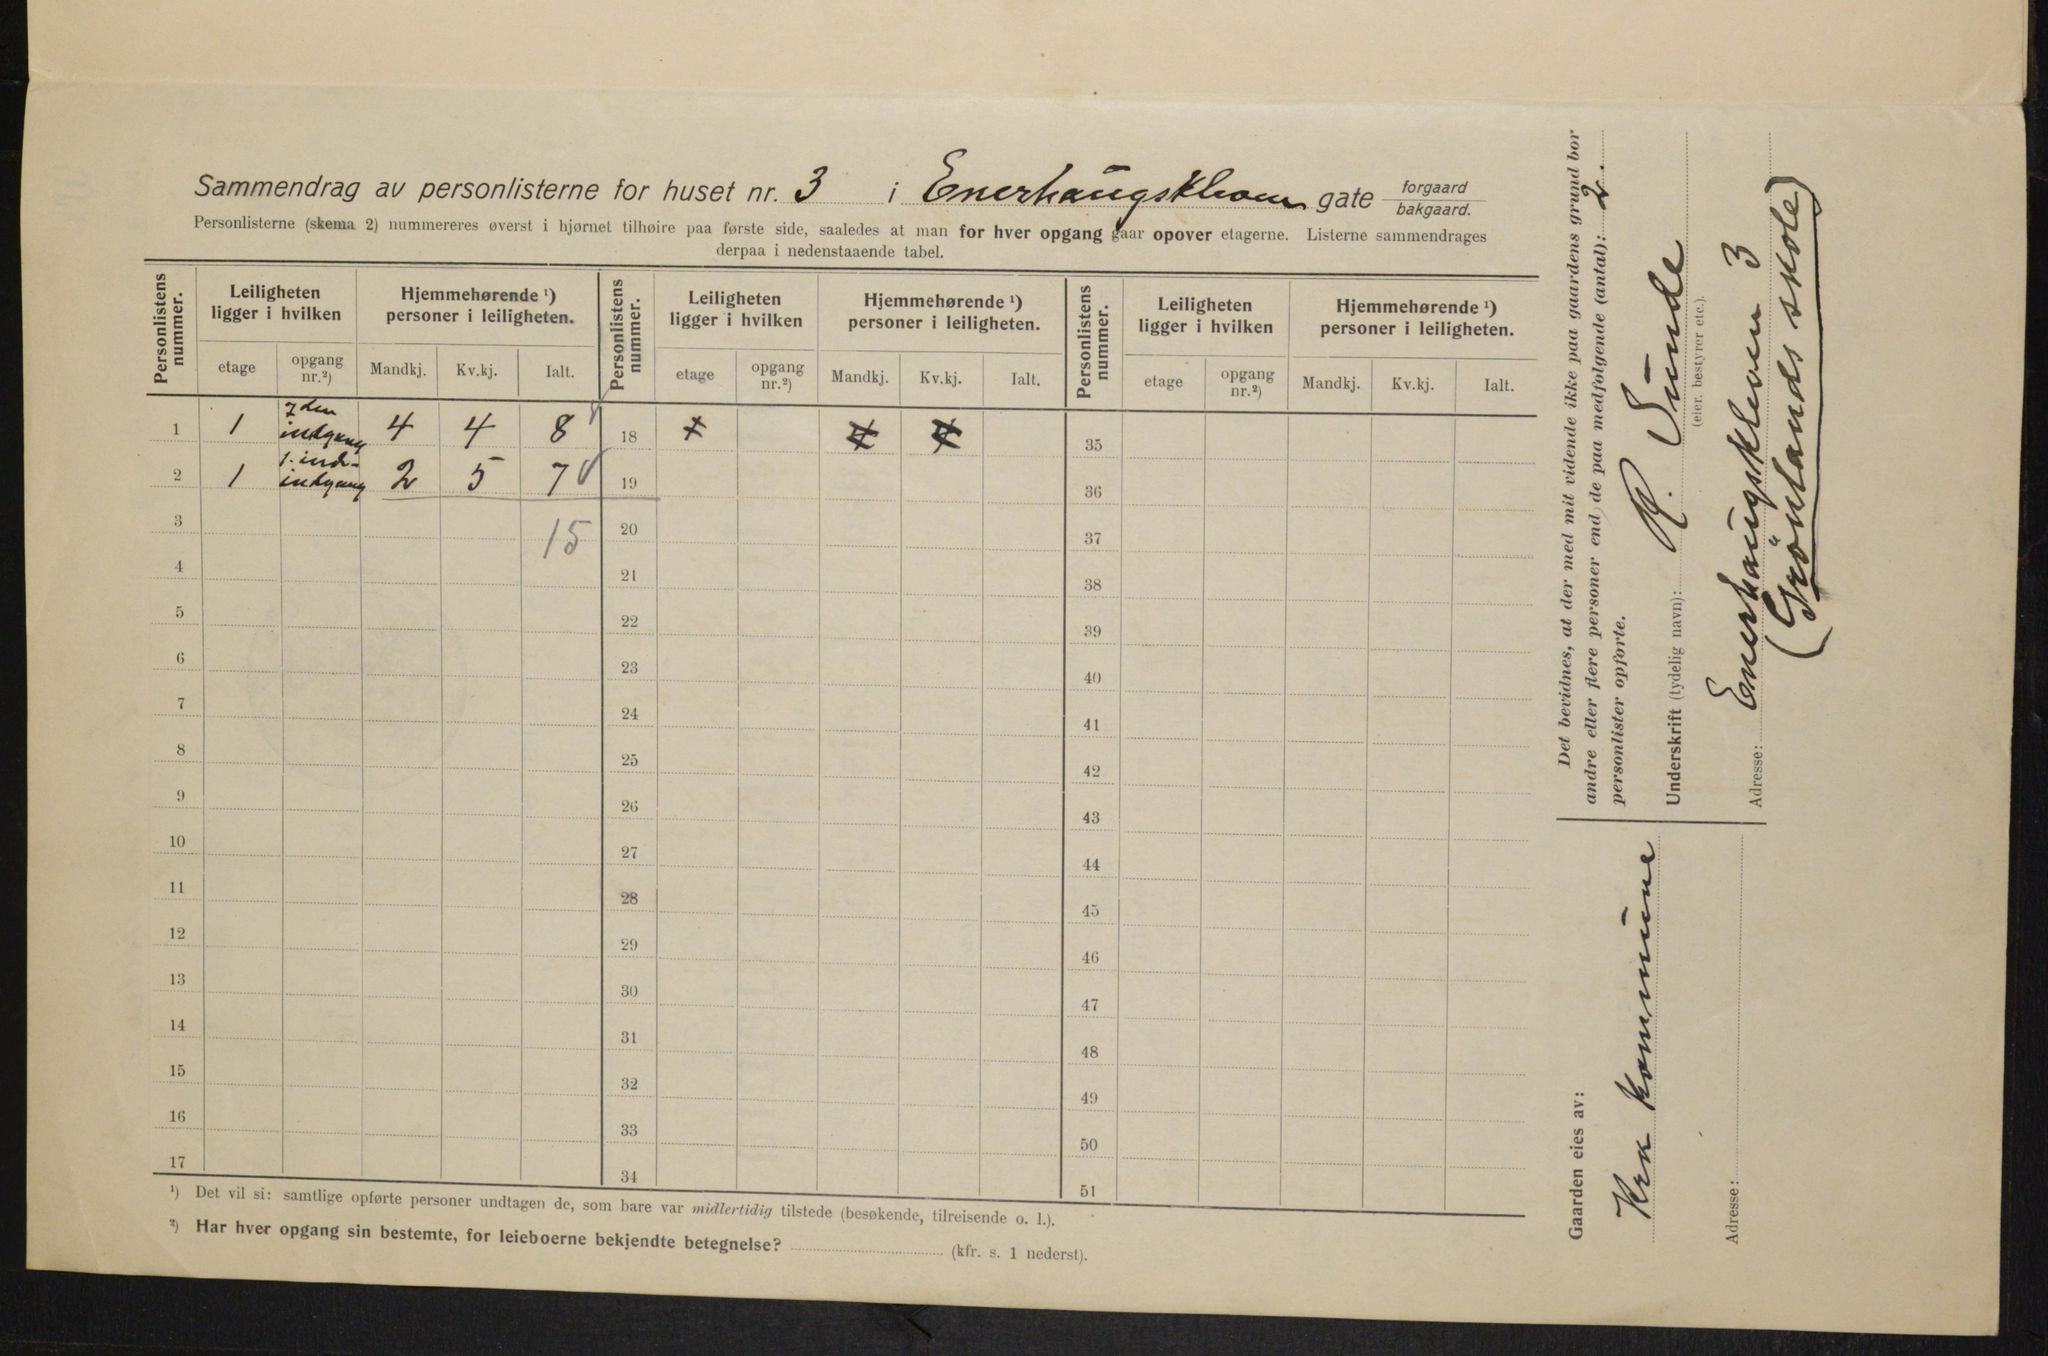 Sammendrag av personlisterne for huset nr. 3 i Enerhaugskleven gate forgaard
bakgaard.
Personlisterne (skema 2) nummereres øverst i hjørnet tilhøire paa første side, saaledes at man for hver opgang gaar opover etagerne. Listerne sammendrages
derpaa i nedenstaaende tabel.
Personlistens nummer. Leiligheten ligger i hvilken Hjemmehørende ¹) personer i leiligheten. Personlistens nummer. Leiligheten ligger i hvilken Hjemmehørende ¹) personer i leiligheten. Personlistens nummer. Leiligheten ligger i hvilken Hjemmehørende ¹) personer i leiligheten.
etage opgang nr.²) Mandkj. Kv.kj. Ialt. etage opgang nr.²) Mandkj. Kv.kj. Ialt. etage opgang nr.²) Mandkj. Kv.kj. Ialt.
1 1 indgang 4 4 8 18 35
2 1 1. ind- indgang 2 5 7 19 36
3 15 20 37
4 21 38
5 22 39
6 23 40
7 24 41
8 25 42
9 26 43
10 27 44
11 28 45
12 29 46
13 30 47
14 31 48
15 32 49
16 33 50
17 34 51
¹) Det vil si: samtlige opførte personer undtagen de, som bare var midlertidig tilstede (besøkende, tilreisende o. l.).
²) Har hver opgang sin bestemte, for leieboerne bekjendte betegnelse? (kfr. s. 1 nederst).
Det bevidnes, at der med mit vidende ikke paa gaardens grund bor
andre eller flere personer end de paa medfølgende (antal): 2.
personlister opførte.
Underskrift (tydelig navn): R. Sunde
(eier, bestyrer etc.).
Adresse: Enerhaugskleven 3
(Grönlands skole)
Gaarden eies av:
Kra kommune
Adresse: